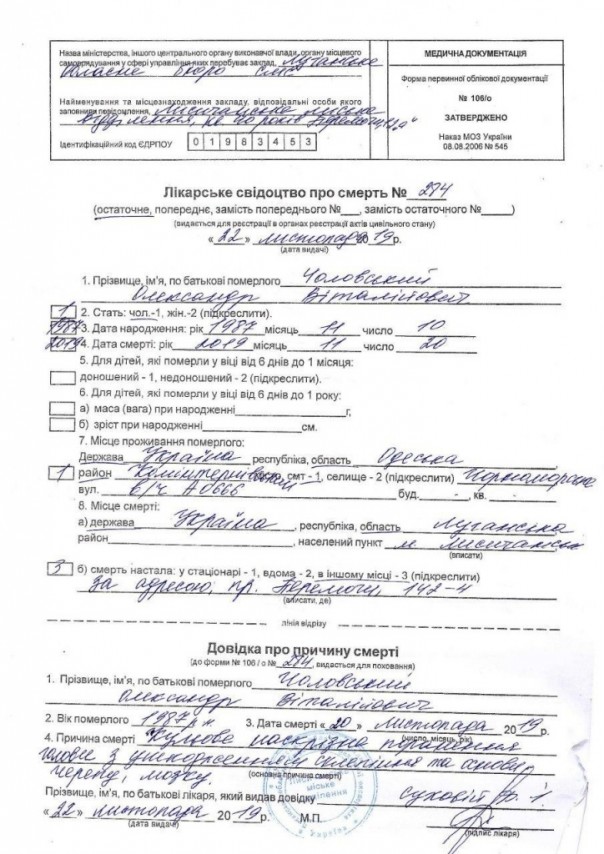 Назва міністерства, іншого центрального органу виконавчої влади, органу місцевого
самоврядування у сфері управління яких перебуває заклад, Луганське
обласне бюро СМЕ
Найменування та місцезнаходження закладу, відповідальні особи якого
заповнили повідомлення, Лисичанське міське
відділення,
Ідентифікаційний код ЄДРПОУ 0 1 9 8 3 4 5 3
МЕДИЧНА ДОКУМЕНТАЦІЯ
Форма первинної облікової документації
№ 106/о
ЗАТВЕРДЖЕНО
Наказ МОЗ України
08.08.2006 № 545
Лікарське свідоцтво про смерть № 274
(остаточне, попереднє, замість попереднього №___, замість остаточного №_____)
(видається для реєстрації в органах реєстрації актів цивільного стану)
« 22 » листопада 2019 р.
(дата видачі)
1. Прізвище, ім'я, по батькові померлого Чоловський
Олександр Віталійович
1 2. Стать: чол.-1, жін.-2 (підкреслити).
1987 3. Дата народження: рік 1987 місяць 11 число 10
2019 4. Дата смерті: рік 2019 місяць 11 число 20
5. Для дітей, які померли у віці від 6 днів до 1 місяця:
доношений - 1, недоношений - 2 (підкреслити).
6. Для дітей, які померли у віці від 6 днів до 1 року:
а) маса (вага) при народженні г,
б) зріст при народженні см.
7. Місце проживання померлого:
Держава Україна, республіка, область Одеська
1 район Комінтернівський, смт - 1, селище - 2 (підкреслити) Чорноморське
вул. в/ч А0666 буд. - кв. -
8. Місце смерті:
а) держава Україна, республіка, область Луганська
район , населений пункт м. Лисичанськ
(вписати)
3 б) смерть настала: у стаціонарі - 1, вдома - 2, в іншому місці - 3 (підкреслити)
за адресою, пр. Перемоги, 142-4
(вписати, де)
лінія відрізу
Довідка про причину смерті
(до форми № 106 / о № 274, видається для поховання)
1. Прізвище, ім'я, по батькові померлого Чоловський
Олександр Віталійович
2. Вік померлого 1987 р.н. 3. Дата смерті « 20 » листопада 2019 р.
(число, місяць, рік)
4. Причина смерті Кульове наскрізне поранення
голови з ушкодженням склепіння та основи
черепу, мозку.
(основна причина смерті)
Прізвище, ім'я, по батькові лікаря, який видав довідку Суховій
« 22 » листопада 2019 р. М.П.
(дата видачі) (підпис лікаря)
міське
Україна